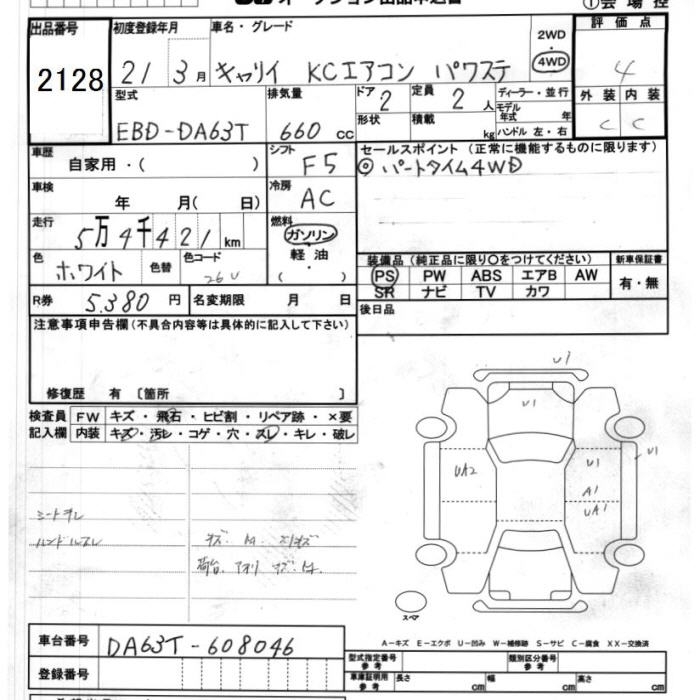 オークション出品申込書
①会場控
出品番号
2128
初度登録年月
21 3月
車名・グレード
キャリイ KCエアコン パワステ
2WD
4WD
評価点
4
外装 内装
C C
型式
EBD-DA63T
排気量
660 cc
ドア 2
形状
定員 2 人
積載 kg
ディーラー・並行
モデル年式 年
ハンドル 左・右
車歴
自家用・( )
シフト
F5
セールスポイント (正常に機能するものに限ります)
◎ パートタイム4WD
車検
年 月( 日)
冷房
AC
走行
5万4千421km
燃料
ガソリン
軽油
・
( )
色
ホワイト
色替
色コード
26U
装備品 (純正品に限り○をつけてください)
新車保証書
PS PW ABS エアB AW
SR ナビ TV カワ
有・無
R券 5.380 円
名変期限 月 日
後日品
注意事項申告欄 (不具合内容等は具体的に記入して下さい)
修復歴 有 〔箇所 〕
検査員記入欄
FW キズ・飛石・ヒビ割・リペア跡・×要
内装 キズ・汚レ・コゲ・穴・スレ・キレ・破レ
シートヨレ
ハンドルスレ
U1
U1
UA2
U1
U1
A1
UA1
スペア
A-キズ E-エクボ U-凹み W-補修跡 S-サビ C-腐食 XX-交換済
車台番号
DA63T-608046
登録番号
型式指定番号 参考
類別区分番号 参考
車庫証明用 参考
長さ cm
幅 cm
高さ cm